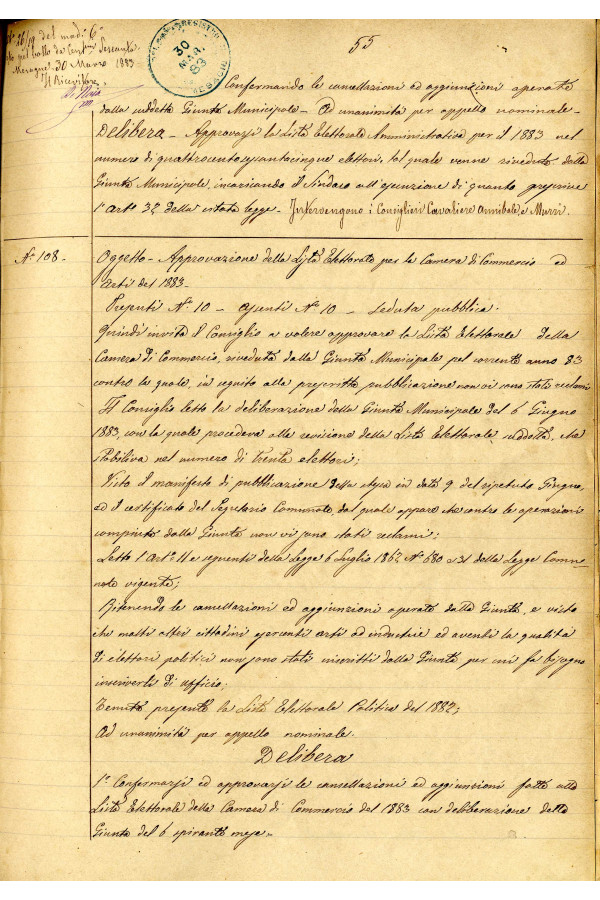 55
N° 26/19 del mod. 6°
Mesagne 30 Marzo 1883
Il Ricevitore
30
MAR.
83
Confermando le cancellazioni ed aggiunzioni operate
dalla suddetta Giunta Municipale - Ad unanimità per appello nominale -
Delibera - Approvarsi la Lista Elettorale Amministrativa per il 1883 nel
numero di quattrocentosessantacinque elettori, tal quale venne riveduta dalla
Giunta Municipale, incaricando il Sindaco all'esecuzione di quanto prescrive
l'art° 32 della citata legge - Intervengono i Consiglieri Cavaliere Annibale e Murri.
N° 108 -
Oggetto - Approvazione della Lista Elettorale per la Camera di Commercio ed
Arti del 1883 -
Presenti N° 10 - Assenti N° 10 - Seduta pubblica -
Quindi invita il Consiglio a volere approvare la Lista Elettorale della
Camera di Commercio, riveduta dalla Giunta Municipale pel corrente anno 83
contro la quale, in seguito alla prescritta pubblicazione non vi sono stati reclami
Il Consiglio letta la deliberazione della Giunta Municipale del 6 Giugno
1883, con la quale procedeva alla revisione della Lista Elettorale suddetta, che
stabiliva nel numero di trenta elettori;
Visto il manifesto di pubblicazione della stessa in data 9 del ripetuto Giugno,
ed il certificato del Segretario Comunale, dal quale appare che contro le operazioni
compiute dalla Giunta non vi sono stati reclami;
Letto l'art° 11 e seguenti della Legge 6 Luglio 1862 N° 680 e 31 della Legge Comu-
nale vigente;
Ritenendo le cancellazioni ed aggiunzioni operate dalla Giunta, e visto
che molti altri cittadini esercenti arti ad industrie ed aventi la qualità
di elettori politici non sono stati inscritti dalla Giunta per cui fa bisogno
inscriverli di ufficio;
Tenuta presente la Lista Elettorale Politica del 1882;
Ad unanimità per appello nominale -
Delibera
1° Confermarsi ed approvarsi le cancellazioni ed aggiunzioni fatte alla
Lista Elettorale della Camera di Commercio del 1883 con deliberazione della
Giunta del 6 spirante mese -